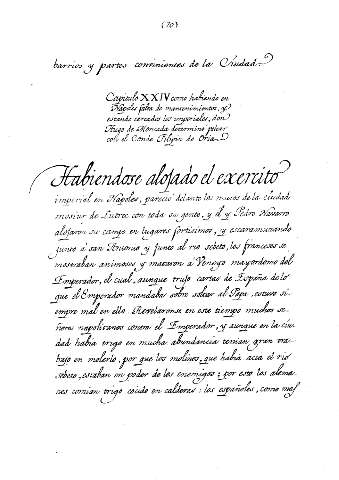 (70)
barrios y partes convinientes de la Ciudad.
Capitulo XXIV como habiendo en
Napoles falta de mantenimientos, y
estando cercados los imperiales, don
Hugo de Moncada determinó pelear
con el Conde Filipin de Oria.
Habiendose alojado el exercito
imperial en Napoles, pareció delante los muros de la ciudad
mosiur de Lutrec con toda su gente, y él y Pedro Navarro
alojaron su campo en lugares fortisimos, y escaramuzando
junto a san Antonio y junto al rio sebeto, los franceses se
mostraban animosos y mataron a Venayo mayordomo del
Emperador, el cual, aunque trujo cartas de España de lo
que el Emperador mandaba sobre soltar al Papa, estuvo si-
empre mal en ello. Rebelaronse en este tiempo muchos se-
ñores napolitanos contra el Emperador, y aunque en la ciu-
dad habia trigo en mucha abundancia tenian gran tra-
bajo en molerlo, por que los molinos, que habia acia el rio
sebeto, estaban en poder de los enemigos: por esto los alema-
nes comian trigo cocido en calderas: los españoles, como mas